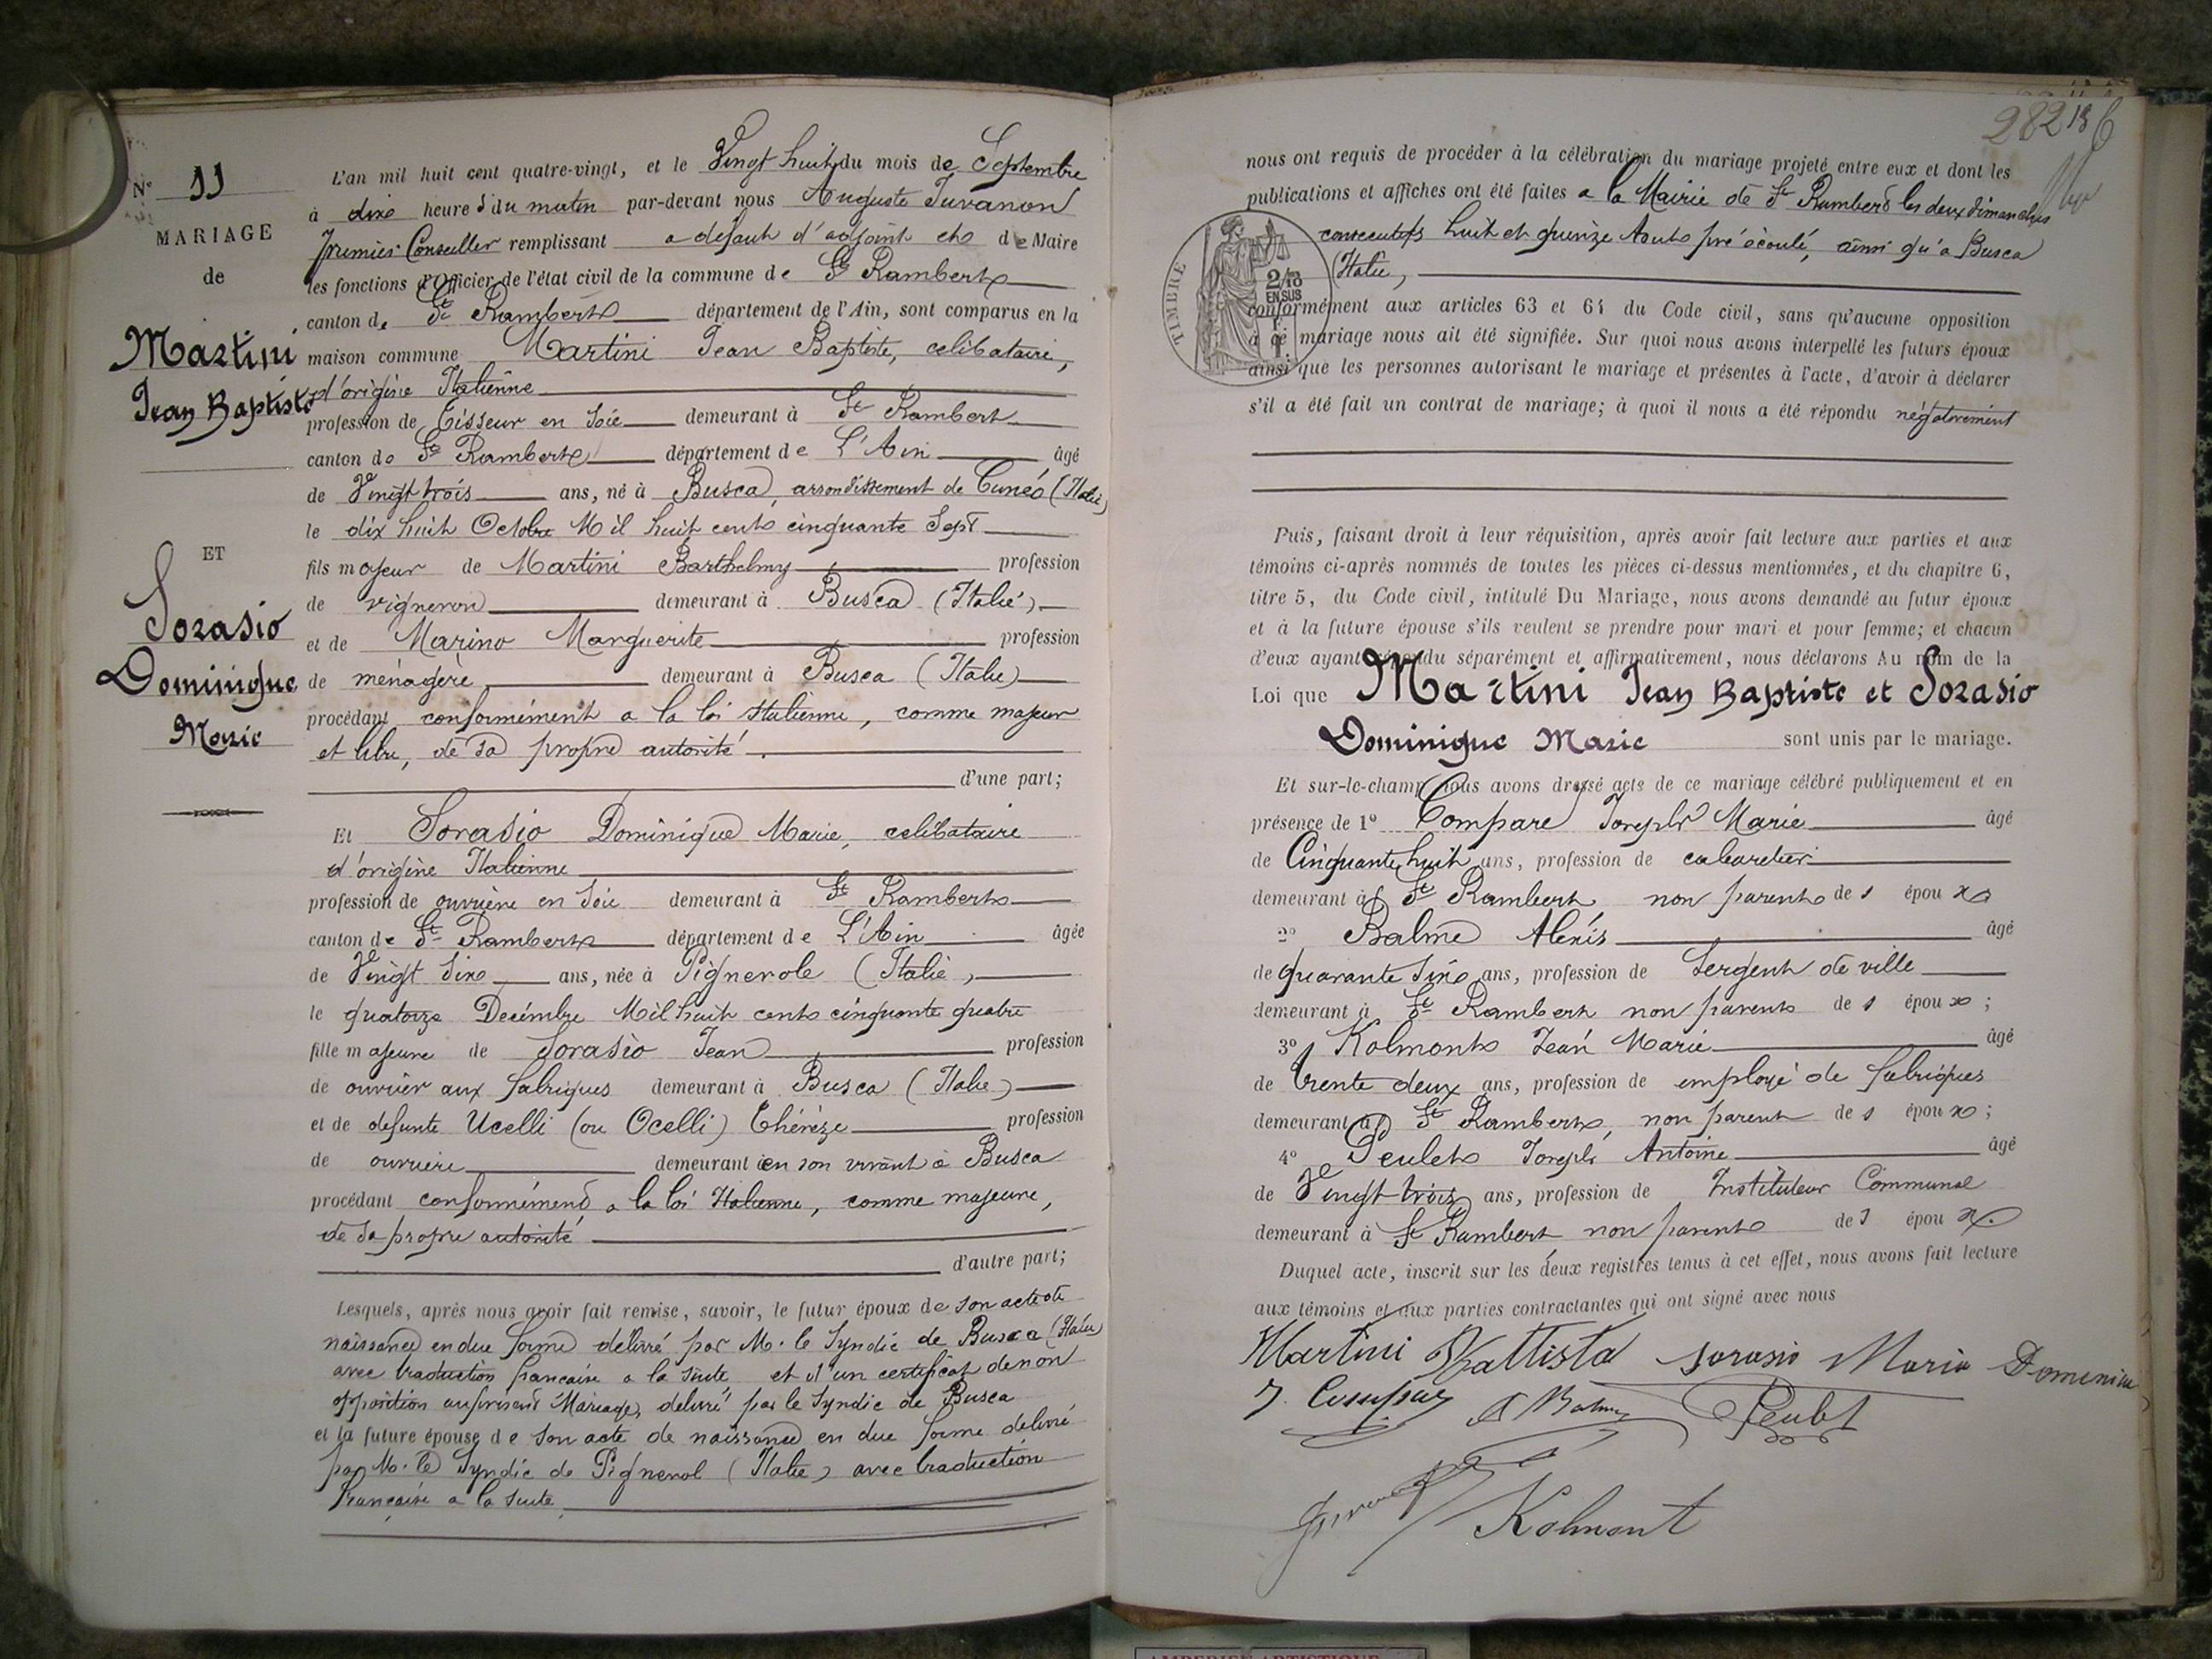 N° 11
MARIAGE
de
Martini
Jean Baptiste
ET
Sorasio
Dominique
Marie
L'an mil huit cent quatre-vingt, et le Vingt huit du mois de Septembre
à dixe heures du matin par-devant nous Auguste Juvanon
premier Conseiller remplissant a défaut d'adjoint et de Maire
les fonctions d'Officier de l'état civil de la commune de St Rambert
canton de St Rambert département de l'Ain, sont comparus en la
maison commune Martini Jean Baptiste, celibataire,
d'origine Italienne
profession de Tisseur en Soie demeurant à St Rambert
canton de St Rambert département de L'Ain âgé
de Vingt trois ans, né à Busca, arrondissement de Cunéo (Italie)
le dix huit Octobre Mil huit cent cinquante Sept
fils majeur de Martini Barthelmy profession
de vigneron demeurant à Busca (Italie)
et de Marino Marguerite profession
de ménagère demeurant à Busca (Italie)
procédant conformément a la loi Italienne, comme majeur
et libre, de sa propre autorité.
d'une part;
Et Sorasio Dominique Marie, celibataire
d'origine Italienne
profession de ouvrière en Soie demeurant à St Rambert
canton de St Rambert département de L'Ain âgée
de Vingt Sixe ans, née à Pignerole (Italie,
le quatorze Decémbre Mil huit cent cinquante quatre
fille majeure de Sorasio Jean profession
de ouvrier aux fabriques demeurant à Busca (Italie)
et de defunte Ucelli (ou Ocelli) Thérèze profession
de ouvriere demeurant à en son vivant à Busca
procédant conformément a la loi Italienne, comme majeure,
de sa propre autorité
d'autre part;
Lesquels, après nous avoir fait remise, savoir, le futur époux de son acte de
naissance en due forme délivré par M. le Syndic de Busca (Italie)
avec traduction francaise a la suite et d'un certificat de non
opposition au présent Mariage, delivré par le Syndic de Busca
et la future épouse de son acte de naissance en due forme délivré
par M. le Syndic de Pignerol (Italie) avec traduction
francaise a la suite
282 186
nous ont requis de procéder à la célébration du mariage projeté entre eux et dont les
publications et affiches ont été faites a la Mairie de St Rambert les deux dimanches
consecutifs huit et quinze Aout pré écoulé, ainsi qu'a Busca
(Italie,
TIMBRE
2/10
EN SUS
conformément aux articles 63 et 64 du Code civil, sans qu'aucune opposition
à ce mariage nous ait été signifiée. Sur quoi nous avons interpellé les futurs époux
ainsi que les personnes autorisant le mariage et présentes à l'acte, d'avoir à déclarer
s'il a été fait un contrat de mariage; à quoi il nous a été répondu négativement
Puis, faisant droit à leur réquisition, après avoir fait lecture aux parties et aux
témoins ci-après nommés de toutes les pièces ci-dessus mentionnées, et du chapitre 6,
titre 5, du Code civil, intitulé Du Mariage, nous avons demandé au futur époux
et à la future épouse s'ils veulent se prendre pour mari et pour femme; et chacun
d'eux ayant répondu séparément et affirmativement, nous déclarons Au nom de la
Loi que Martini Jean Baptiste et Sorasio
Dominique Marie sont unis par le mariage.
Et sur-le-champ nous avons dressé acte de ce mariage célébré publiquement et en
présence de 1° Compare Joseph Marie âgé
de Cinquante huit ans, profession de cabaretier
demeurant à St Rambert non parent de s époux
2° Balme Alexis âgé
de quarante sixe ans, profession de Sergent de ville
demeurant à St Rambert non parent de s époux;
3° Kolmont Jean Marie âgé
de trente deux ans, profession de employé de fabriques
demeurant à St Rambert, non parent de s époux;
4° Peulet Joseph Antoine âgé
de Vingt trois ans, profession de Instituteur Communal
demeurant à St Rambert non parent de s époux.
Duquel acte, inscrit sur les deux registres tenus à cet effet, nous avons fait lecture
aux témoins et aux parties contractantes qui ont signé avec nous
Martini Battista Sorasio Maria Domenica
J. Compare A Balme Peulet
Kolmont